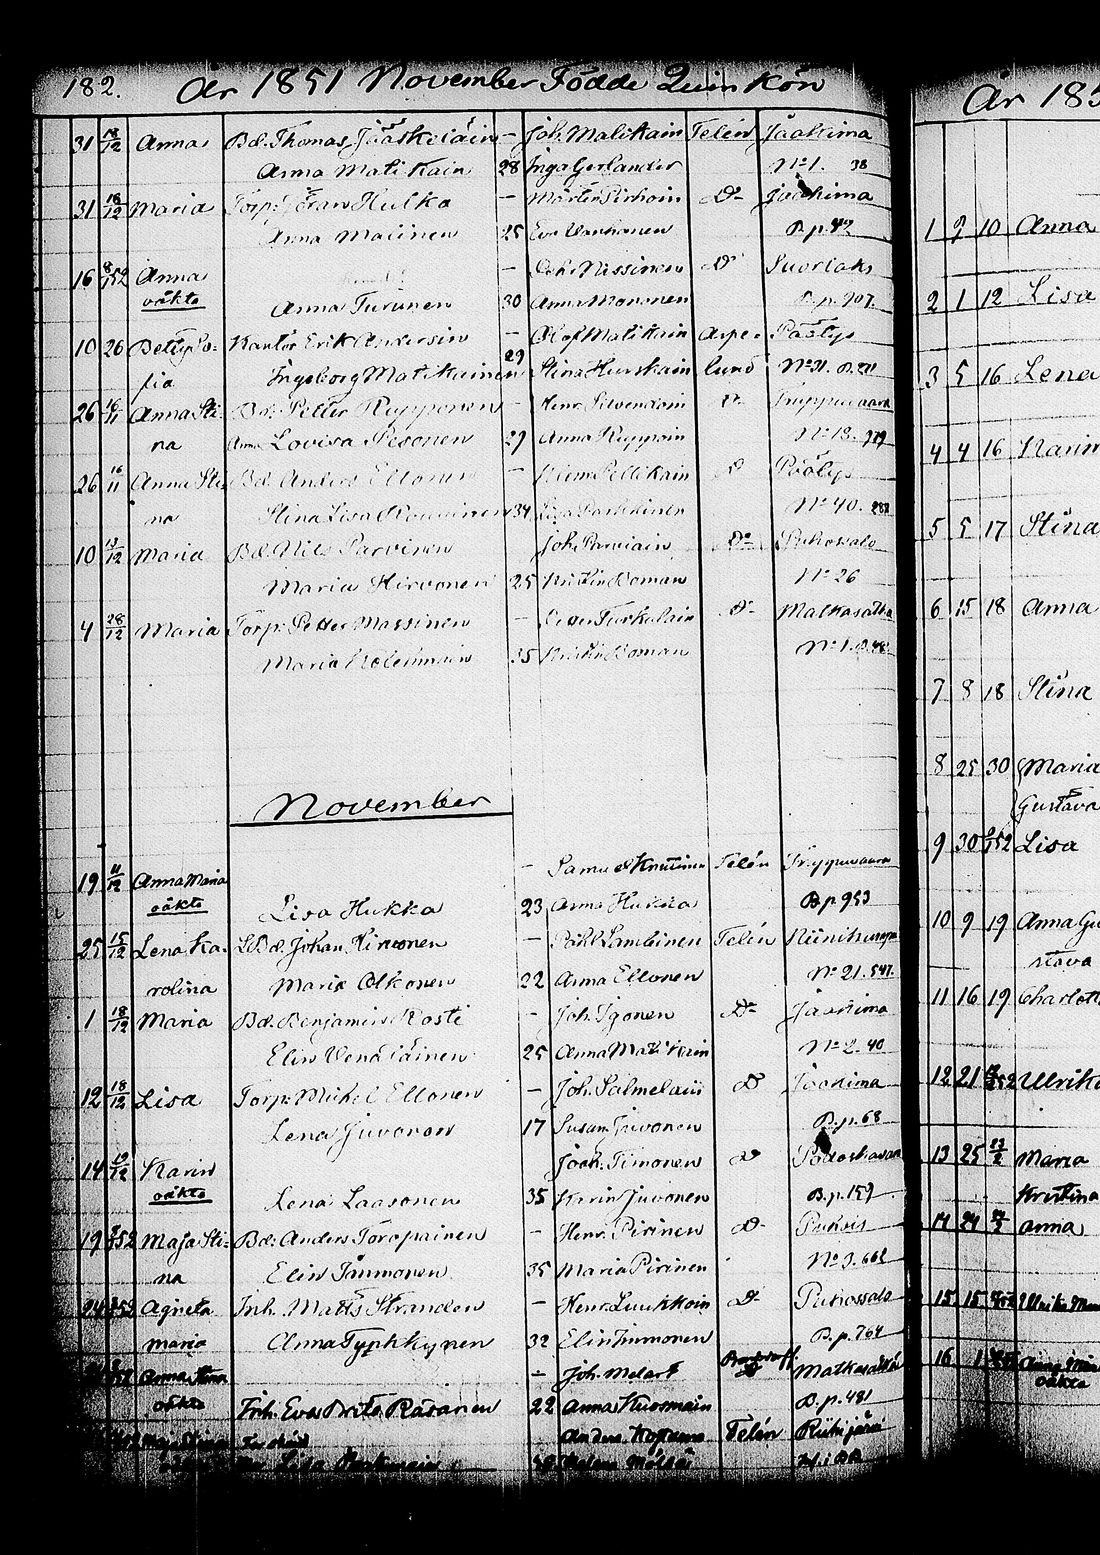 182. År 1851 November Födde Quinkön
31 18/12 Anna Bd. Thomas Jääskeläin - Joh. Malikain Telén Jaakima
Anna Matikain 28 Inga Gerlander No 1. 38
31 18/12 Maria Torp. Göran Hulka - Mårten Pirhoin Do Jaakima
Anna Malinen 25 Eva Vanhanen B.p. 42
16 8/1 52 Anna - Joh. Nissinen Do Suorlaks
oäkta Anna Turunen 30 Anna Mononen B.p. 907.
10 26 Betty So- Kantor Erik Andersin - Olof Matikain Aspe- Päätys
fia Ingeborg Matikainen 29 Stina Hurskain lund No 31.
26 16/11 Anna Sti- Bd. Petter Rupponen - Henr. Do Truppuvaara
na Anna Lovisa Pesonen 27 Anna Ruppoin No 13. 379
26 16/11 Anna Sti- Bd. Anders Ellonen - Pellikain Do Päätys
na Stina Lisa 34 Lisa Parkkinen No 40. 288
10 13/12 Maria Bd. Nils Parvinen Joh. Parviain Do Puhossalo
Maria Hirvonen 25 Kristin Woman No 26
4 28/12 Maria Torp. Petter Massinen - Petter Turkulain Do Matkasalka
Maria Kolehmain 35 Kristin Woman No 1.
November
19 11/12 Anna Maria - Samuel Knutinen Telén Truppuvaara
oäkta Lisa Hukka 23 Anna Hukka B.p 953
25 15/12 Lena Ka- LBd. Johan Hirvonen - Påhl Lambinen Telén Niinikumpu
rolina Maria Olkonen 22 Anna Ellonen No 21. 547.
1 18/12 Maria Bd. Benjamin Kosti - Joh. Igonen Do Jaakima
Elin Venäläinen 25 Anna Matikain No 2. 40
12 18/12 Lisa Torp. Mikel Ellonen - Joh. Salmelain Do Jaakima
Lena Juvonen 17 Susan. Juvonen B.p. 68
14 19/12 Karin Joak. Timonen Do Potoskavaara
oäkta Lena Laasonen 35 Karin Juvonen B.p. 157
19 52 Maja Sti- Bd. Anders Toropainen - Henr. Pirinen Do Puhois
na Elin Immonen 35 Maria Pirinen No 3. 662
24 52 Agneta Inh. Matts Stranden - Henr. Luukkoin Do Puhossalo
Maria Anna Typhkynen 32 Elin Immonen B.p. 764
Anna Stina - Joh. Melart Matkasalka
oäkta Inh. Eva Brita Räsänen 22 Anna Kuosmain B.p. 481
Maja Stina Anders Telén Ristijärvi
Lisa Helena
År 185
1 2 10 Anna
2 1 12 Lisa
3 5 16 Lena
4 4 16 Karin
5 5 17 Stina
6 15 18 Anna
7 8 18 Stina
8 25 30 Maria
Gustava
9 30 52 Lisa
10 9 19 Anna Gu
stava
11 16 19 Charlott
12 21 52 Ulrika
13 25 23/2 Maria
Kristina
14 24 Anna
15 15 Ulrika
16 1 Anna
oäkta